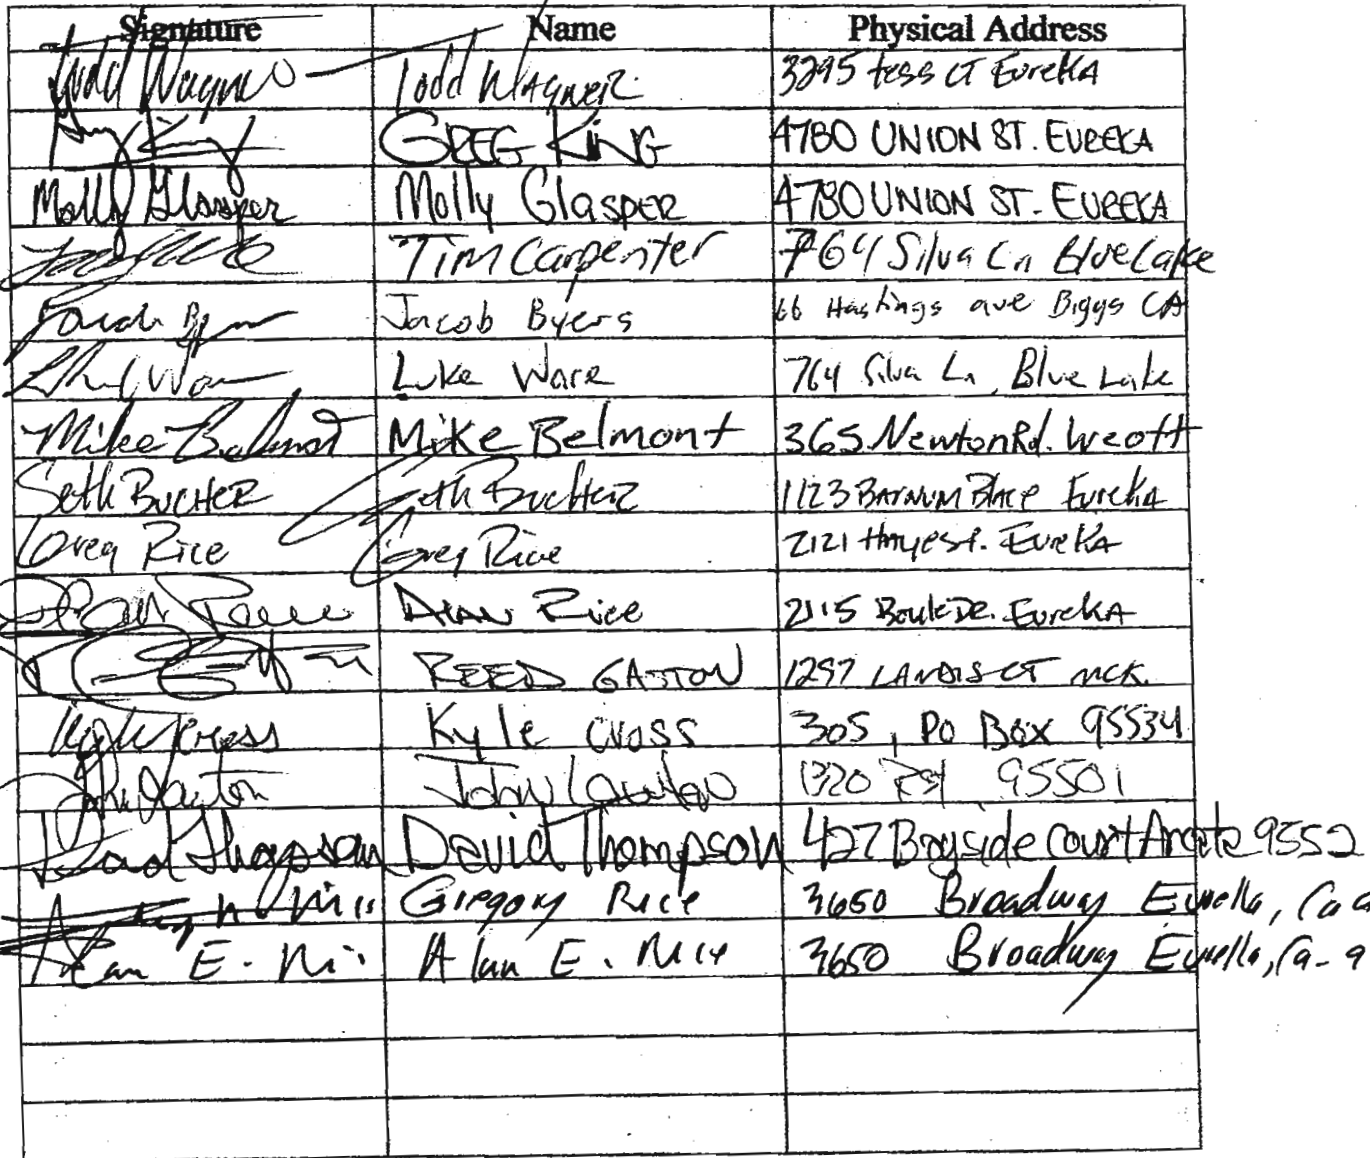 Signature Name Physical Address
Todd Wagner Todd Wagner 3295 tess CT EureKA
Greg King GREG KING 4780 UNION ST. EUREKA
Molly Glasper Molly GlaspER 4780 UNION ST. EUREKA
Tim Carpenter 764 Silva Ln Blue Lake
Jacob Byers Jacob Byers 66 Hastings ave Biggs CA
Luke Ware 764 Silva Ln, Blue Lake
Mike Belmont Mike Belmont 365 Newton Rd. Weott
Seth BUCHER Seth Bucher 1123 BARNUM Place Eureka
Greg Rice Greg Rice 2121 Hayes . EureKA
Alan Rice 2115 EureKA
REED GASTON 1297 LANDIS CT MCK.
Kyle Cross Kyle Cross 305, PO Box 95534
John Layton John 1320 95501
David Thompson David Thompson 427 Bayside Court Arcata 9552
Gregory Rice 3650 Broadway Eureka, Ca
Alan E. Alan E. Rice 3650 Broadway Eureka, Ca- 9